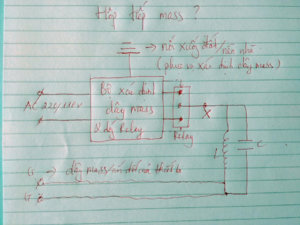 Hộp tiếp mass ?
→ nối xuống đất/nền nhà
(phục vụ xác định dây mass)
AC 220/110V
Bộ xác định
dây mass
Relay
Relay
X
L
C
→ dây mass/nối đất của thiết bị